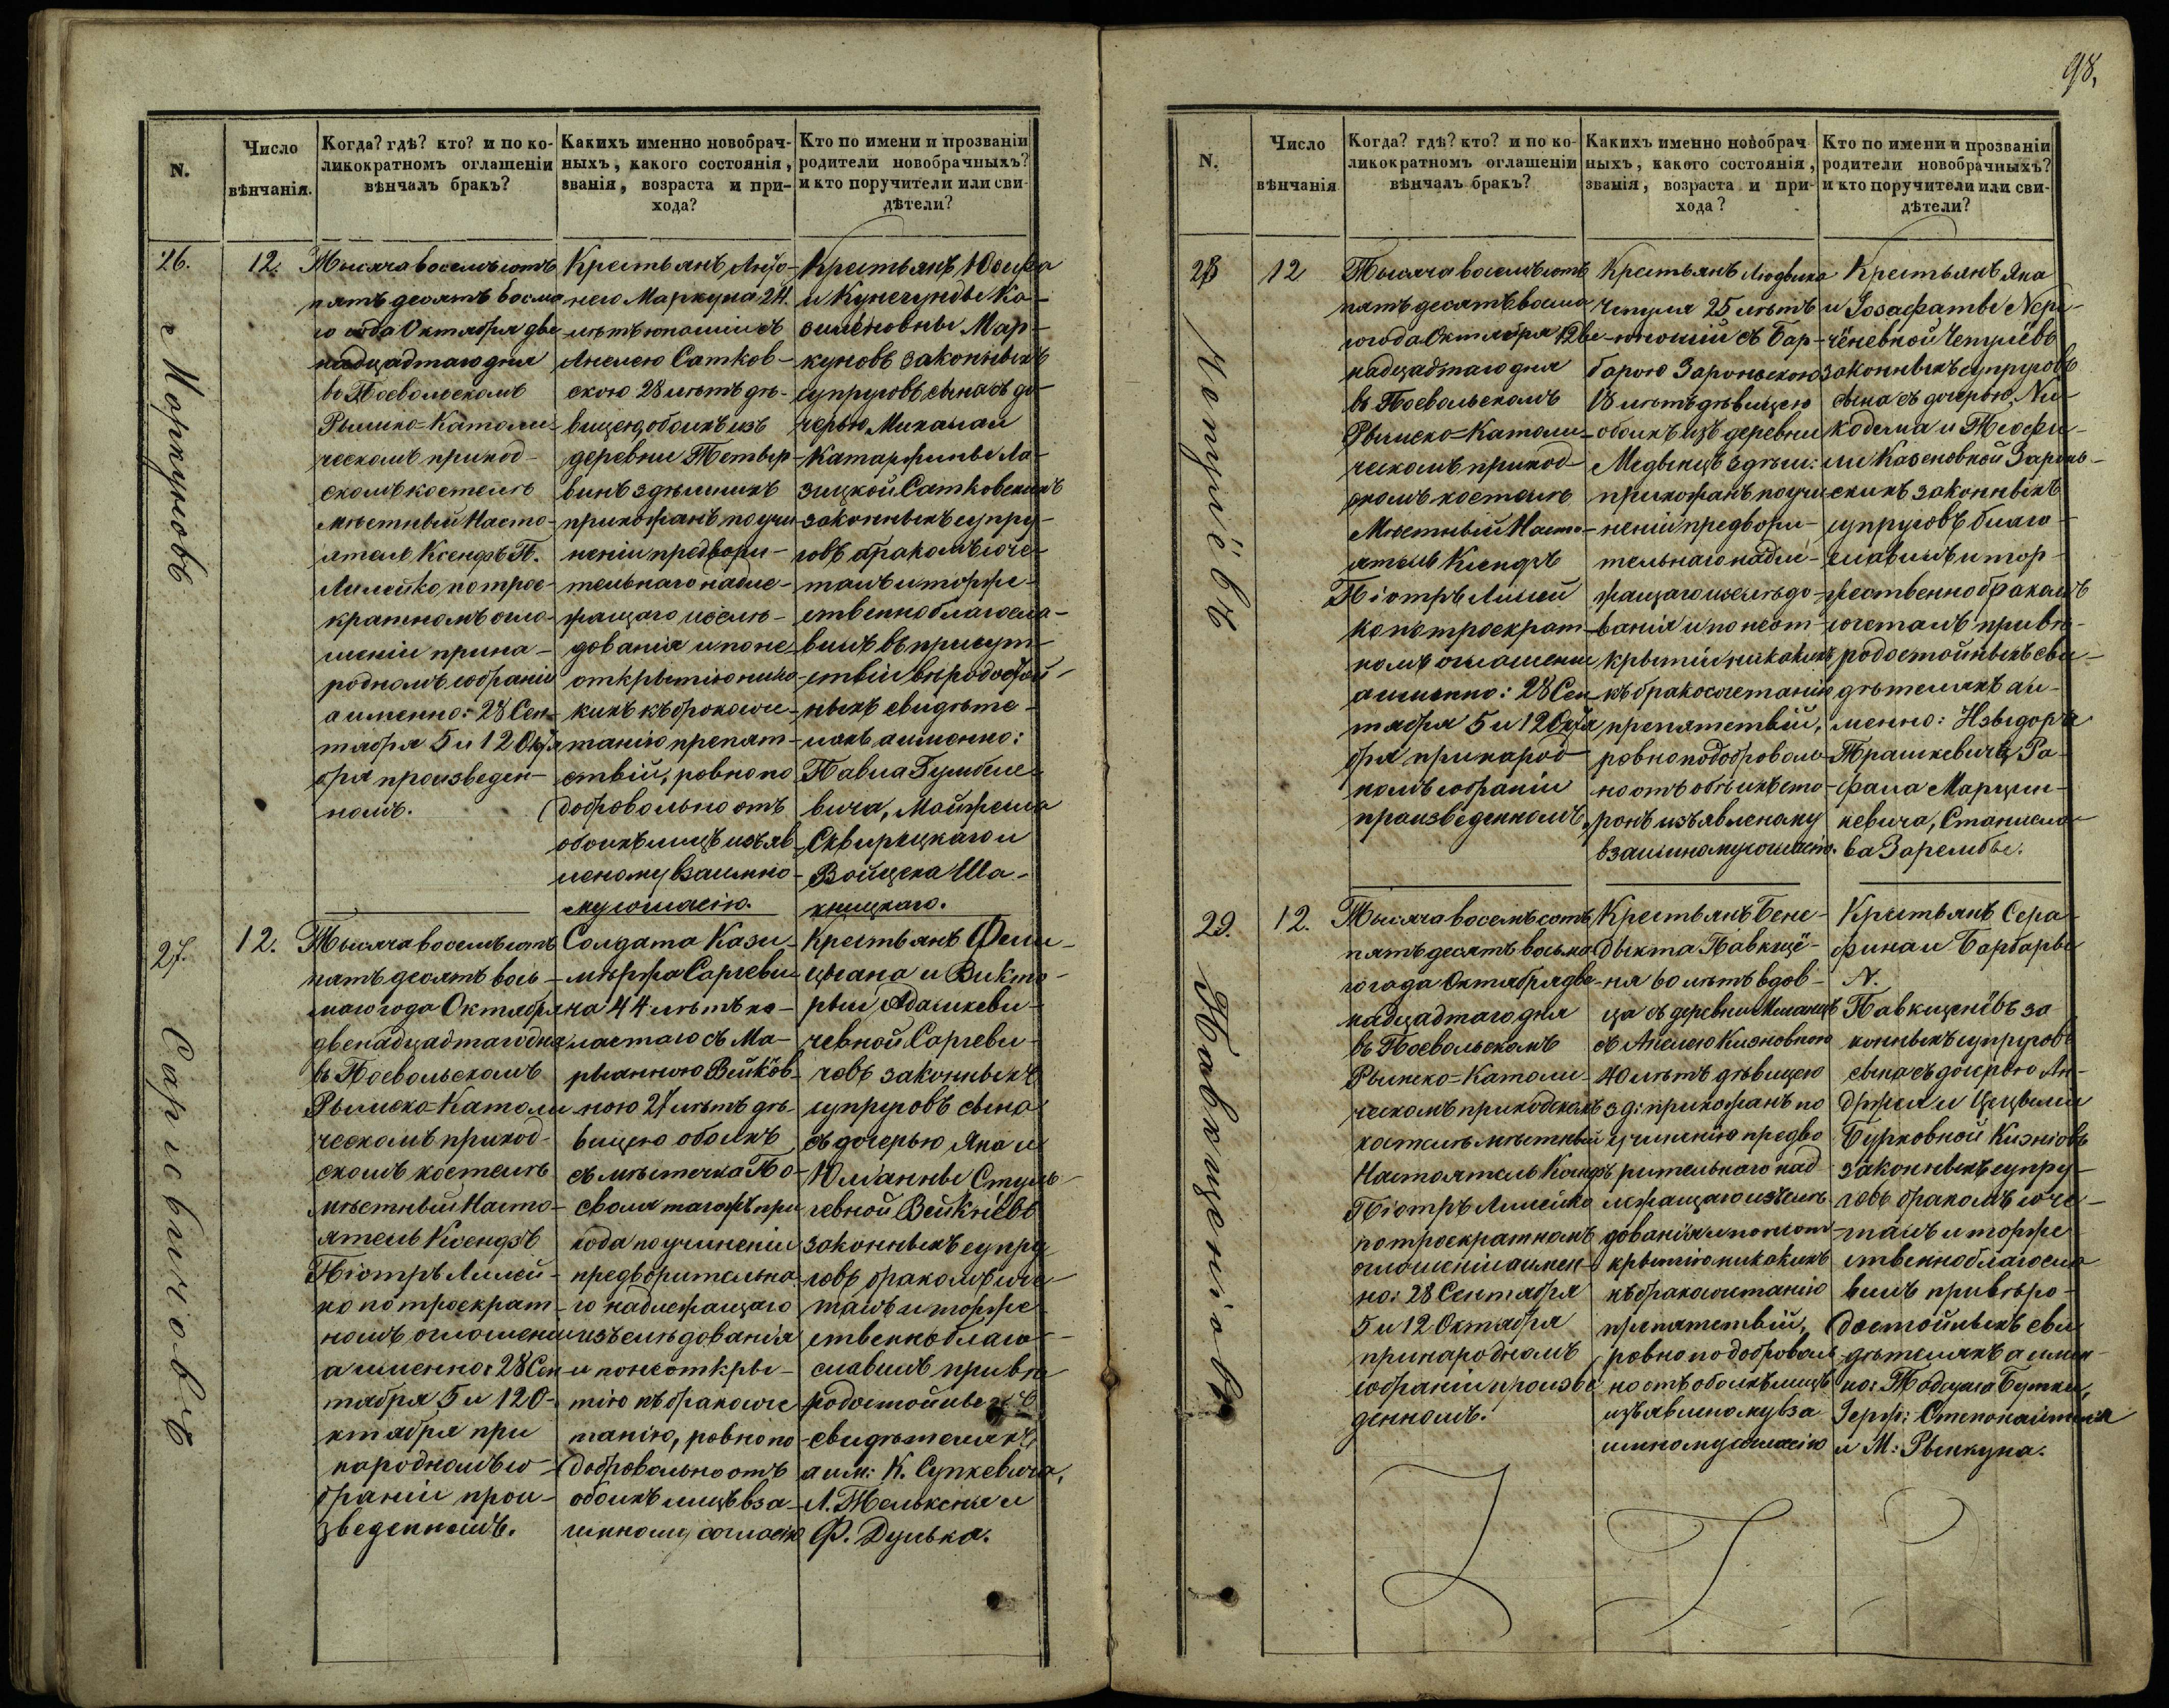 98,
N.
Число
вѣнчанія.
Когда? гдѣ? кто? и по ко-
ликократномъ оглашеніи
вѣнчалъ бракъ?
Какихъ именно новобрач-
ныхъ, какого состоянія,
званія, возраста и при-
хода?
Кто по имени и прозванiи
родители новобрачныхъ?
и кто поручители или сви-
дѣтели?
26.
Маркуновъ
12.
Тысяча восемьсотъ
пятьдесятъ восма
го года Октября две
надцадтаго дня
въ Поевольскомъ
Римско-Католи
ческомъ приход-
скомъ костелѣ
мѣстный Насто-
ятель Ксендзъ П.
Лилейко по трое-
кратномъ огла-
шеніи при на-
родномъ собраніи
а именно: 28 Сен-
тября 5 и 12 Октя
бря произведен-
номъ.
Крестьянъ Анто-
него Маркуна 24.
лѣтъ юношіи съ
Анелею Сатков-
скою 28 лѣтъ дѣ-
вицею, обоихъ изъ
деревни Тетыр-
винъ здѣшнихъ
прихожанъ по учи
неніи предвари-
тельнаго надле-
жащаго изслѣ-
дованія и по не
открытію ника-
кихъ къ бракосоче-
танію препят-
ствій, ровно по
добровольно отъ
обоихъ лицъ изъяв
леному взаимно
му согласію.
Крестьянъ Юосифа
и Кунегунды Ка-
зилёновны Мар-
куновъ законныхъ
супруговъ сына съ до-
черью Михаила и
Катаржины Ла-
зицкой Сатковскихъ
законныхъ супру-
говъ бракомъ соче-
талъ и торже-
ственно благосла-
вилъ въ присут-
ствіи вѣродостой-
ныхъ свидѣте-
ляхъ а именно:
Павла Гумбеле-
вича, Матеуша
Сквирецкаго и
Войцеха Ша-
кницкаго.
27.
Саргевичовъ
12.
Тысяча восемьсотъ
пятьдесятъ вось-
маго года Октября
двенадцадтаго дня
въ Поевольскомъ
Римско-Католи
ческомъ приход-
скомъ костелѣ
мѣстный Насто-
ятель Ксендзъ
Піотръ Лилей-
ко по троекрат-
номъ оглашеніи
а именно: 28 Сен
тября 5 и 12 О-
ктября при
народномъ со-
браніи прои-
зведенномъ.
Солдата Кази-
мѣржа Саргеви
ча 44 лѣтъ хо-
ластаго съ Ма-
рыанною Вейков-
ною 21 лѣтъ дѣ-
вицею обоихъ
съ мѣстечка По-
еволя тагожъ при
хода по учиненіи
предворительна
го надлежащаго
изъслѣдованія
и по не откры-
тію къ бракосоче
танію, ровно по
добровольно отъ
обоихъ лицъ вза-
имному согласію
Крестьянъ Фели-
цыана и Викто-
рыи Адашкеви-
чевной Саргеви-
човъ законныхъ
супруговъ сына
съ дочерью Яна и
Юліанны Стуль-
гевной Вейкнёвъ
законныхъ супру
говъ бракомъ соче
талъ и торже-
ственно благо-
славилъ при вѣ
родостойныхъ
свидѣтеляхъ
а им: К. Супкевича,
Л. Желькеня и
Ф. Дулька.
N.
Число
вѣнчанія
Когда? гдѣ? кто? и по ко-
ликократномъ оглашеніи
вѣнчалъ бракъ?
Какихъ именно новобрач
ныхъ, какого состоянія,
званія, возраста и при-
хода?
Кто по имени и прозванiи
родители новобрачныхъ?
и кто поручители или сви-
дѣтели?
28
Чепулёвъ
12
Тысяча восемьсотъ
пятьдесятъ восма
го года Октября две-
надцадтаго дня
въ Поевольскомъ
Римско-Католи-
ческомъ приход-
скомъ костелѣ
Мѣстный Насто-
ятель Ксендзъ
Піотръ Лилей
ко по троекрат-
номъ оглашеніи
а именно: 28 Сен
тября 5 и 12 Октя
бря при народ-
номъ собраніи
произведенномъ,
Крестьянъ Людвика
Чепуля 25 лѣтъ
юношіи съ Бар-
барою Заронскою
18 лѣтъ дѣвицею
обоихъ изъ деревни
Медвинцъ здѣш:
прихожанъ по учи
неніи предвори-
тельнаго надле-
жащаго изслѣдо-
ванія и по не от-
крытіи никакихъ
къ бракосочетанію
препятствій,
ровно по доброволь-
но отъ обоихъ сто-
ронъ изъявленому
взаимному согласію.
Крестьянъ Яна
и Іозафаты Нерг-
чёневной Чепулёвъ
законныхъ супруговъ
сына съ дочерью Ни-
кодема и Теофи-
ли Казеновной Заронь-
скихъ законныхъ
супруговъ благо-
славилъ и тор-
жественно бракомъ
сочеталъ при вѣ-
родостойныхъ сви-
дѣтеляхъ а и-
менно: Изыдора
Трашкевича, Ра-
фала Марцин-
кевича, Станисла-
ва Зарембы.
29.
Павкщеніовъ
12.
Тысяча восемьсотъ
пятьдесятъ восьма
го года Октября две-
надцадтаго дня
въ Поевольскомъ
Римско-Католи-
ческомъ приходскомъ
костелѣ мѣстный
Настоятель Ксендзъ
Піотръ Лилейко
по троекратномъ
оглашеніи а имен-
но: 28 Сентября
5 и 12 Октября
при народномъ
собраніи произве
денномъ.
Крестьянъ Бене-
дыкта Павкщё-
ня 60 лѣтъ вдов-
ца съ деревни
съ Анелею Кизновною
40 лѣтъ дѣвицею
зд: прихожанъ по
учиненію предва
рительнаго над
лежащаго изъслѣ
дованія и по не от-
крытію никакихъ
къ бракосочетанію
препятствій,
ровно по доброволь
но отъ обоихъ лицъ
изъявленому вза
имному согласію
Крестьянъ Сера-
фина и Барбары
N.
Павкщенёвъ за
конныхъ супруговъ
сына съ дочерью Ан-
држея и Цецыліи
Бурковной Кизніовъ
законныхъ супру-
говъ бракомъ соче-
талъ и торже
ственно благосла
вилъ при вѣро-
достойныхъ сви
дѣтеляхъ а имен-
но: Тадеуша Бутки,
Іерж: Степонайтиса
и М: Рынкуна.